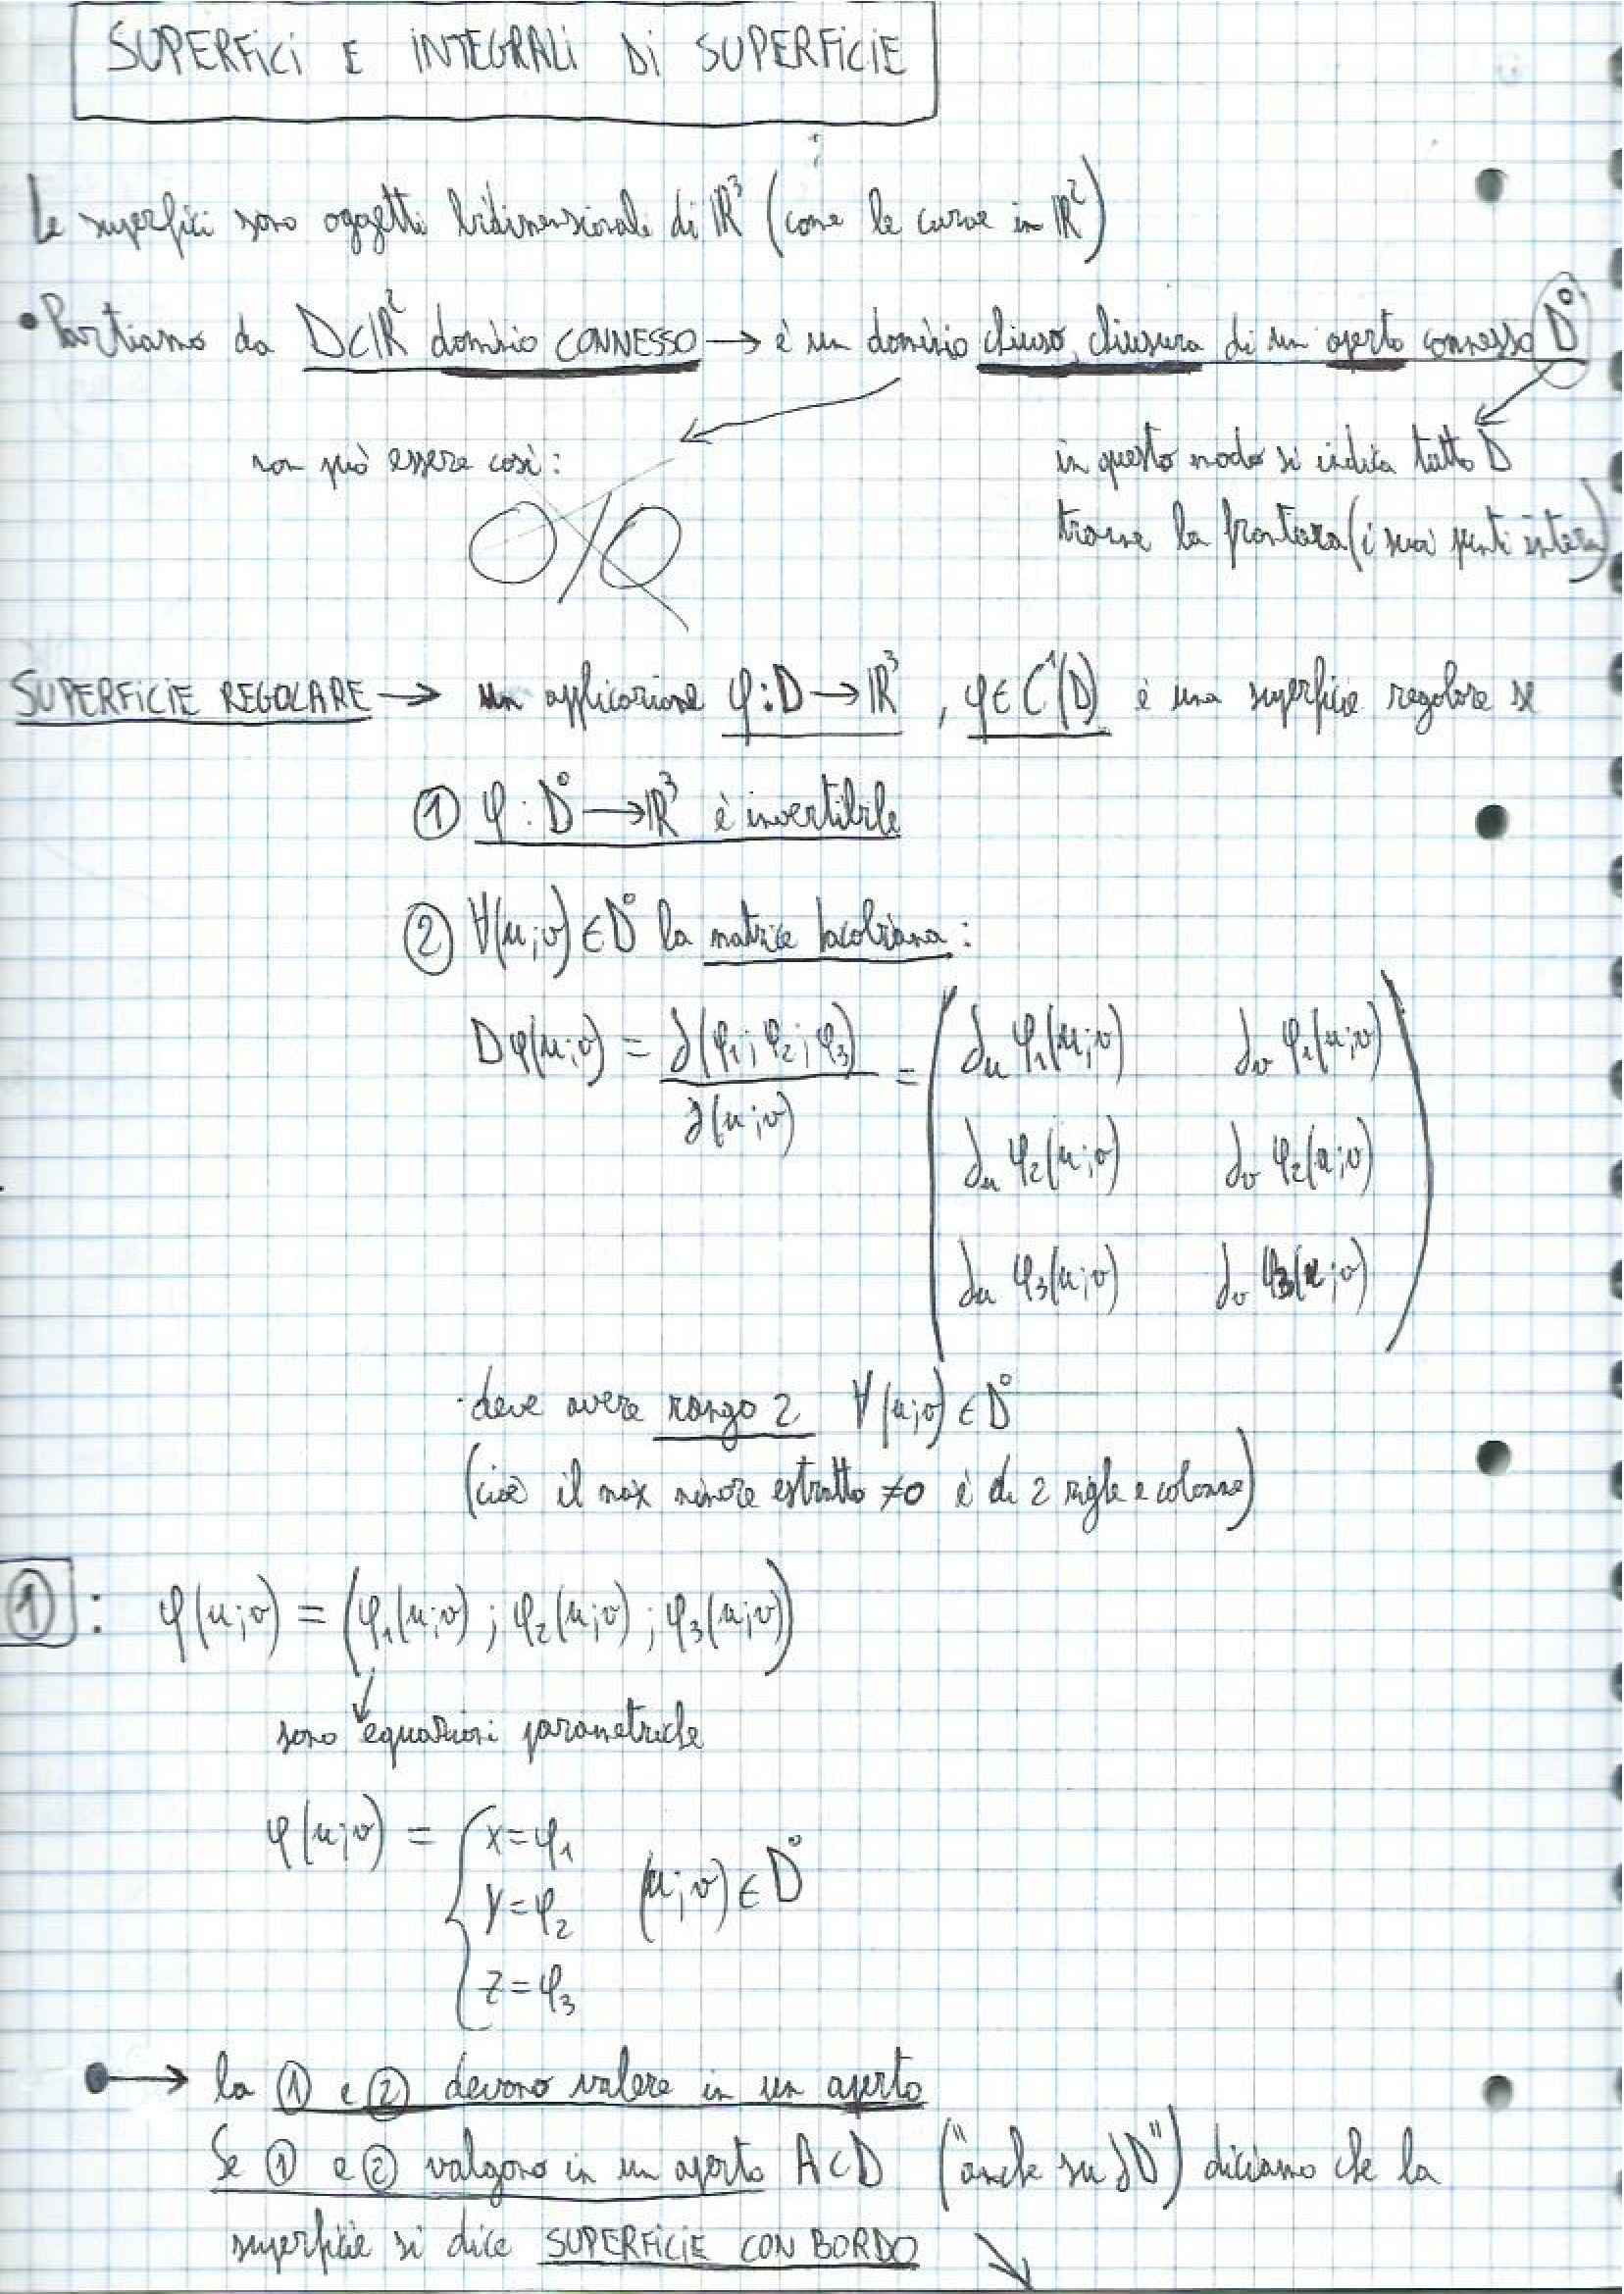 SUPERFICI E INTEGRALI DI SUPERFICIE
Le superfici sono oggetti bidimensionali di ℝ³ (come le curve in ℝ²)
• Partiamo da D⊂ℝ² dominio CONNESSO → è un dominio chiuso, chiusura di un aperto connesso D°
non può essere così:
in questo modo si indica tutto D
tranne la frontiera (i suoi punti interni)
SUPERFICIE REGOLARE → un applicazione φ:D→ℝ³, φ∈C¹(D) è una superficie regolare se
① φ: D°→ℝ³ è invertibile
② ∀(u;v)∈D° la matrice Jacobiana:
Dφ(u;v) = ∂(φ₁;φ₂;φ₃)/∂(u;v) = ( ∂u φ₁(u;v) ∂v φ₁(u;v)
∂u φ₂(u;v) ∂v φ₂(u;v)
∂u φ₃(u;v) ∂v φ₃(u;v) )
deve avere rango 2 ∀(u;v)∈D°
(cioè il max minore estratto ≠0 è di 2 righe e colonne)
①: φ(u;v) = (φ₁(u;v); φ₂(u;v); φ₃(u;v))
sono equazioni parametriche
φ(u;v) = { x=φ₁
y=φ₂ (u;v)∈D°
z=φ₃
•→ la ① e ② devono valere in un aperto
Se ① e ② valgono in un aperto A⊂D ("anche su ∂D") diciamo che la
superficie si dice SUPERFICIE CON BORDO ↘